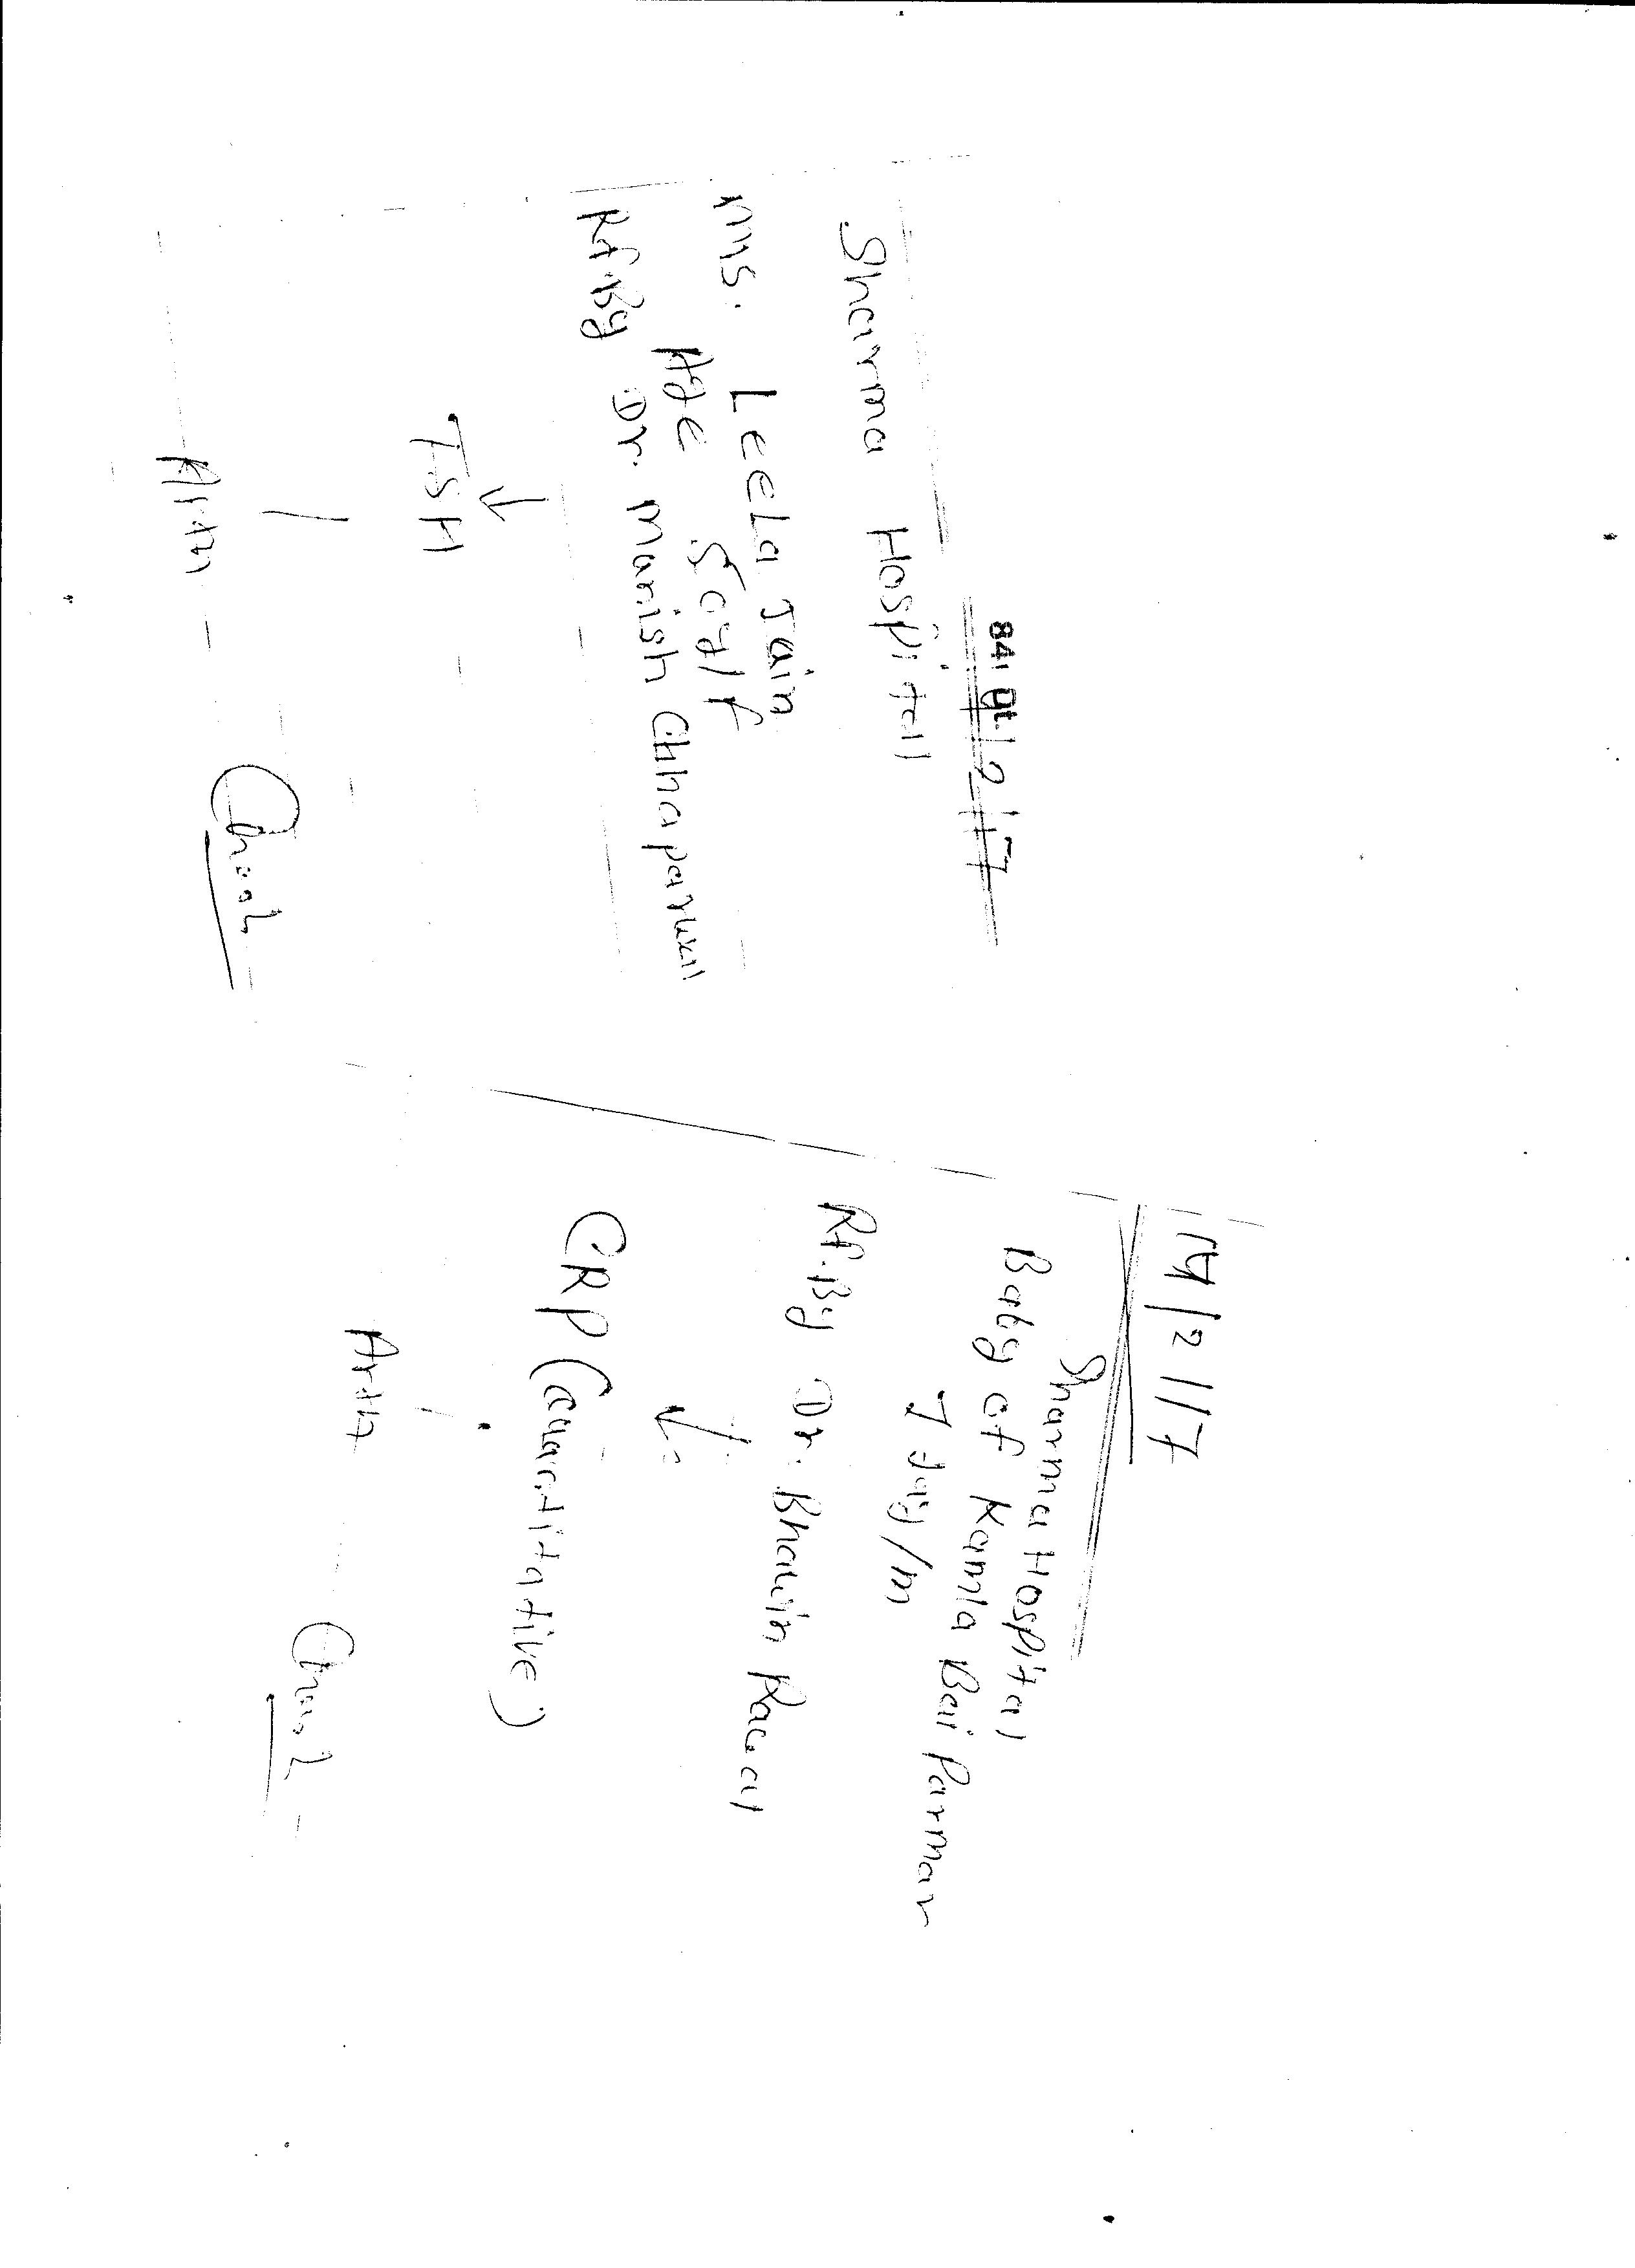 Sharma Hospital
Ms. Leela Jain
Age 50y/F
Rf. By Dr. Manish Chhaparwal
↓
TSH
Arth
14/2/17
Sharma Hospital
Baby of Kamla Bai Parmar
7 day/m
Rf. By Dr. Bhawin Rawal
↓
CRP (Quantitative)
Arth